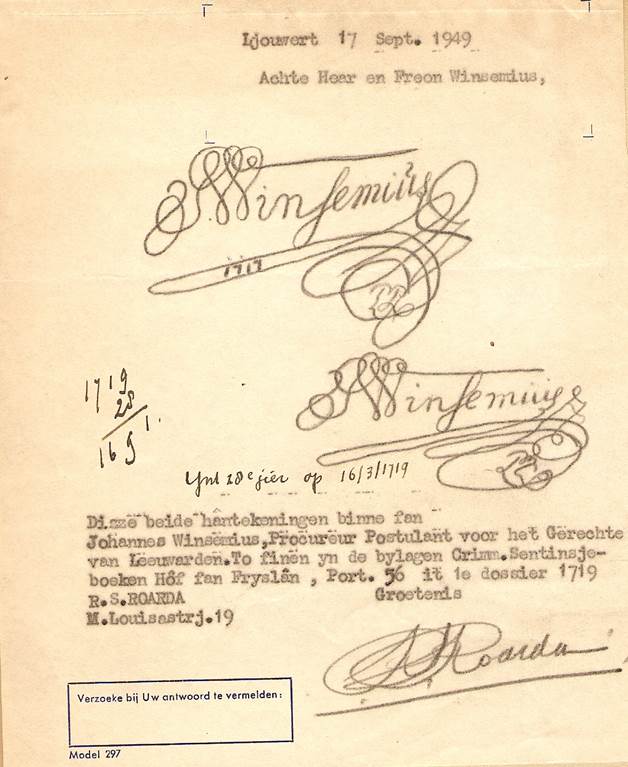 Ljouwert 17 Sept. 1949
Achte Hear en Freon Winsemius,
JWinsemius
1717
JWinsemius
1719
28
1691.
Ynt 28e jier op 16/3/1719
Disze beide hântekeningen binne fan
Johannes Winsemius,Procureur Postulant voor het Gerechte
van Leeuwarden.To finen yn de bylagen Crimm.Sentinsje-
boeken Hôf fan Fryslân , Port. 56 it 1e dossier 1719
R.S.ROARDA Groetenis
M.Louisastrj.19
RSRoarda
Verzoeke bij Uw antwoord te vermelden:
Model 297